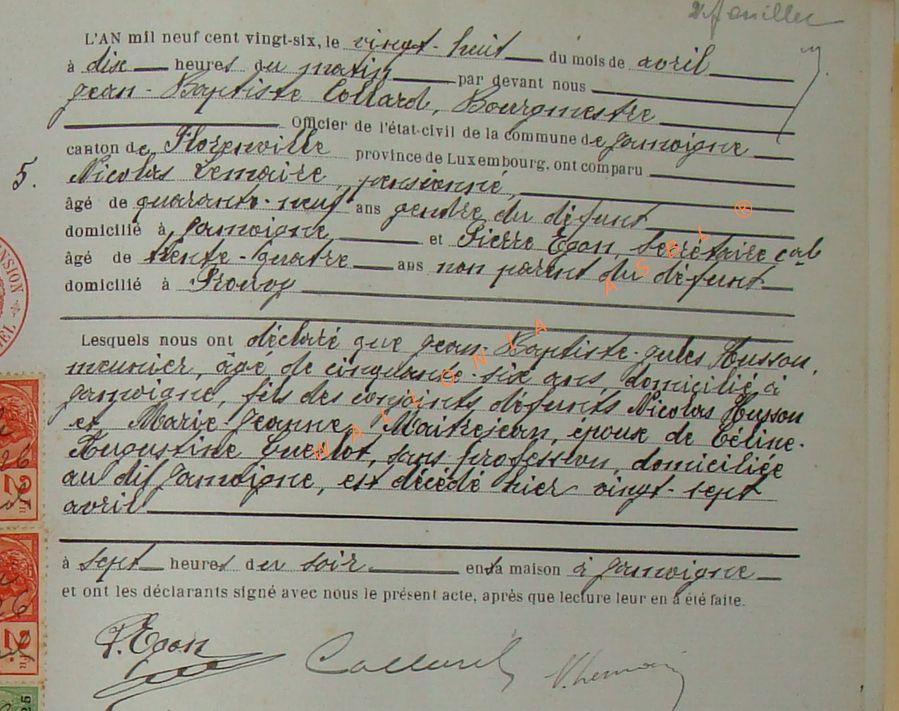 L'AN mil neuf cent vingt-six, le vingt-huit du mois de avril
à dix heures du matin par devant nous
Jean-Baptiste Collard, Bourgmestre
Officier de l'état-civil de la commune de Jamoigne
canton de Florenville province de Luxembourg, ont comparu
5. Nicolas Lemaire, pensionné,
âgé de quarante-neuf ans gendre du défunt
domicilié à Jamoigne et Pierre Egon, secrétaire cal
âgé de trente-quatre ans non parent du défunt
domicilié à
Lesquels nous ont déclaré que Jean-Baptiste-Jules Husson,
meunier, âgé de cinquante-six ans, domicilié à
Jamoigne, fils des conjoints défunts Nicolas Husson
et Marie Jeanne Maitrejean, époux de Céline-
Augustine Guerlot, sans profession, domiciliée
au dit Jamoigne, est décédé hier vingt-sept
avril
à sept heures du soir en sa maison à Jamoigne
et ont les déclarants signé avec nous le présent acte, après que lecture leur en a été faite.
P. Egon Collard N. Lemaire
WALLONIA ASBL ®